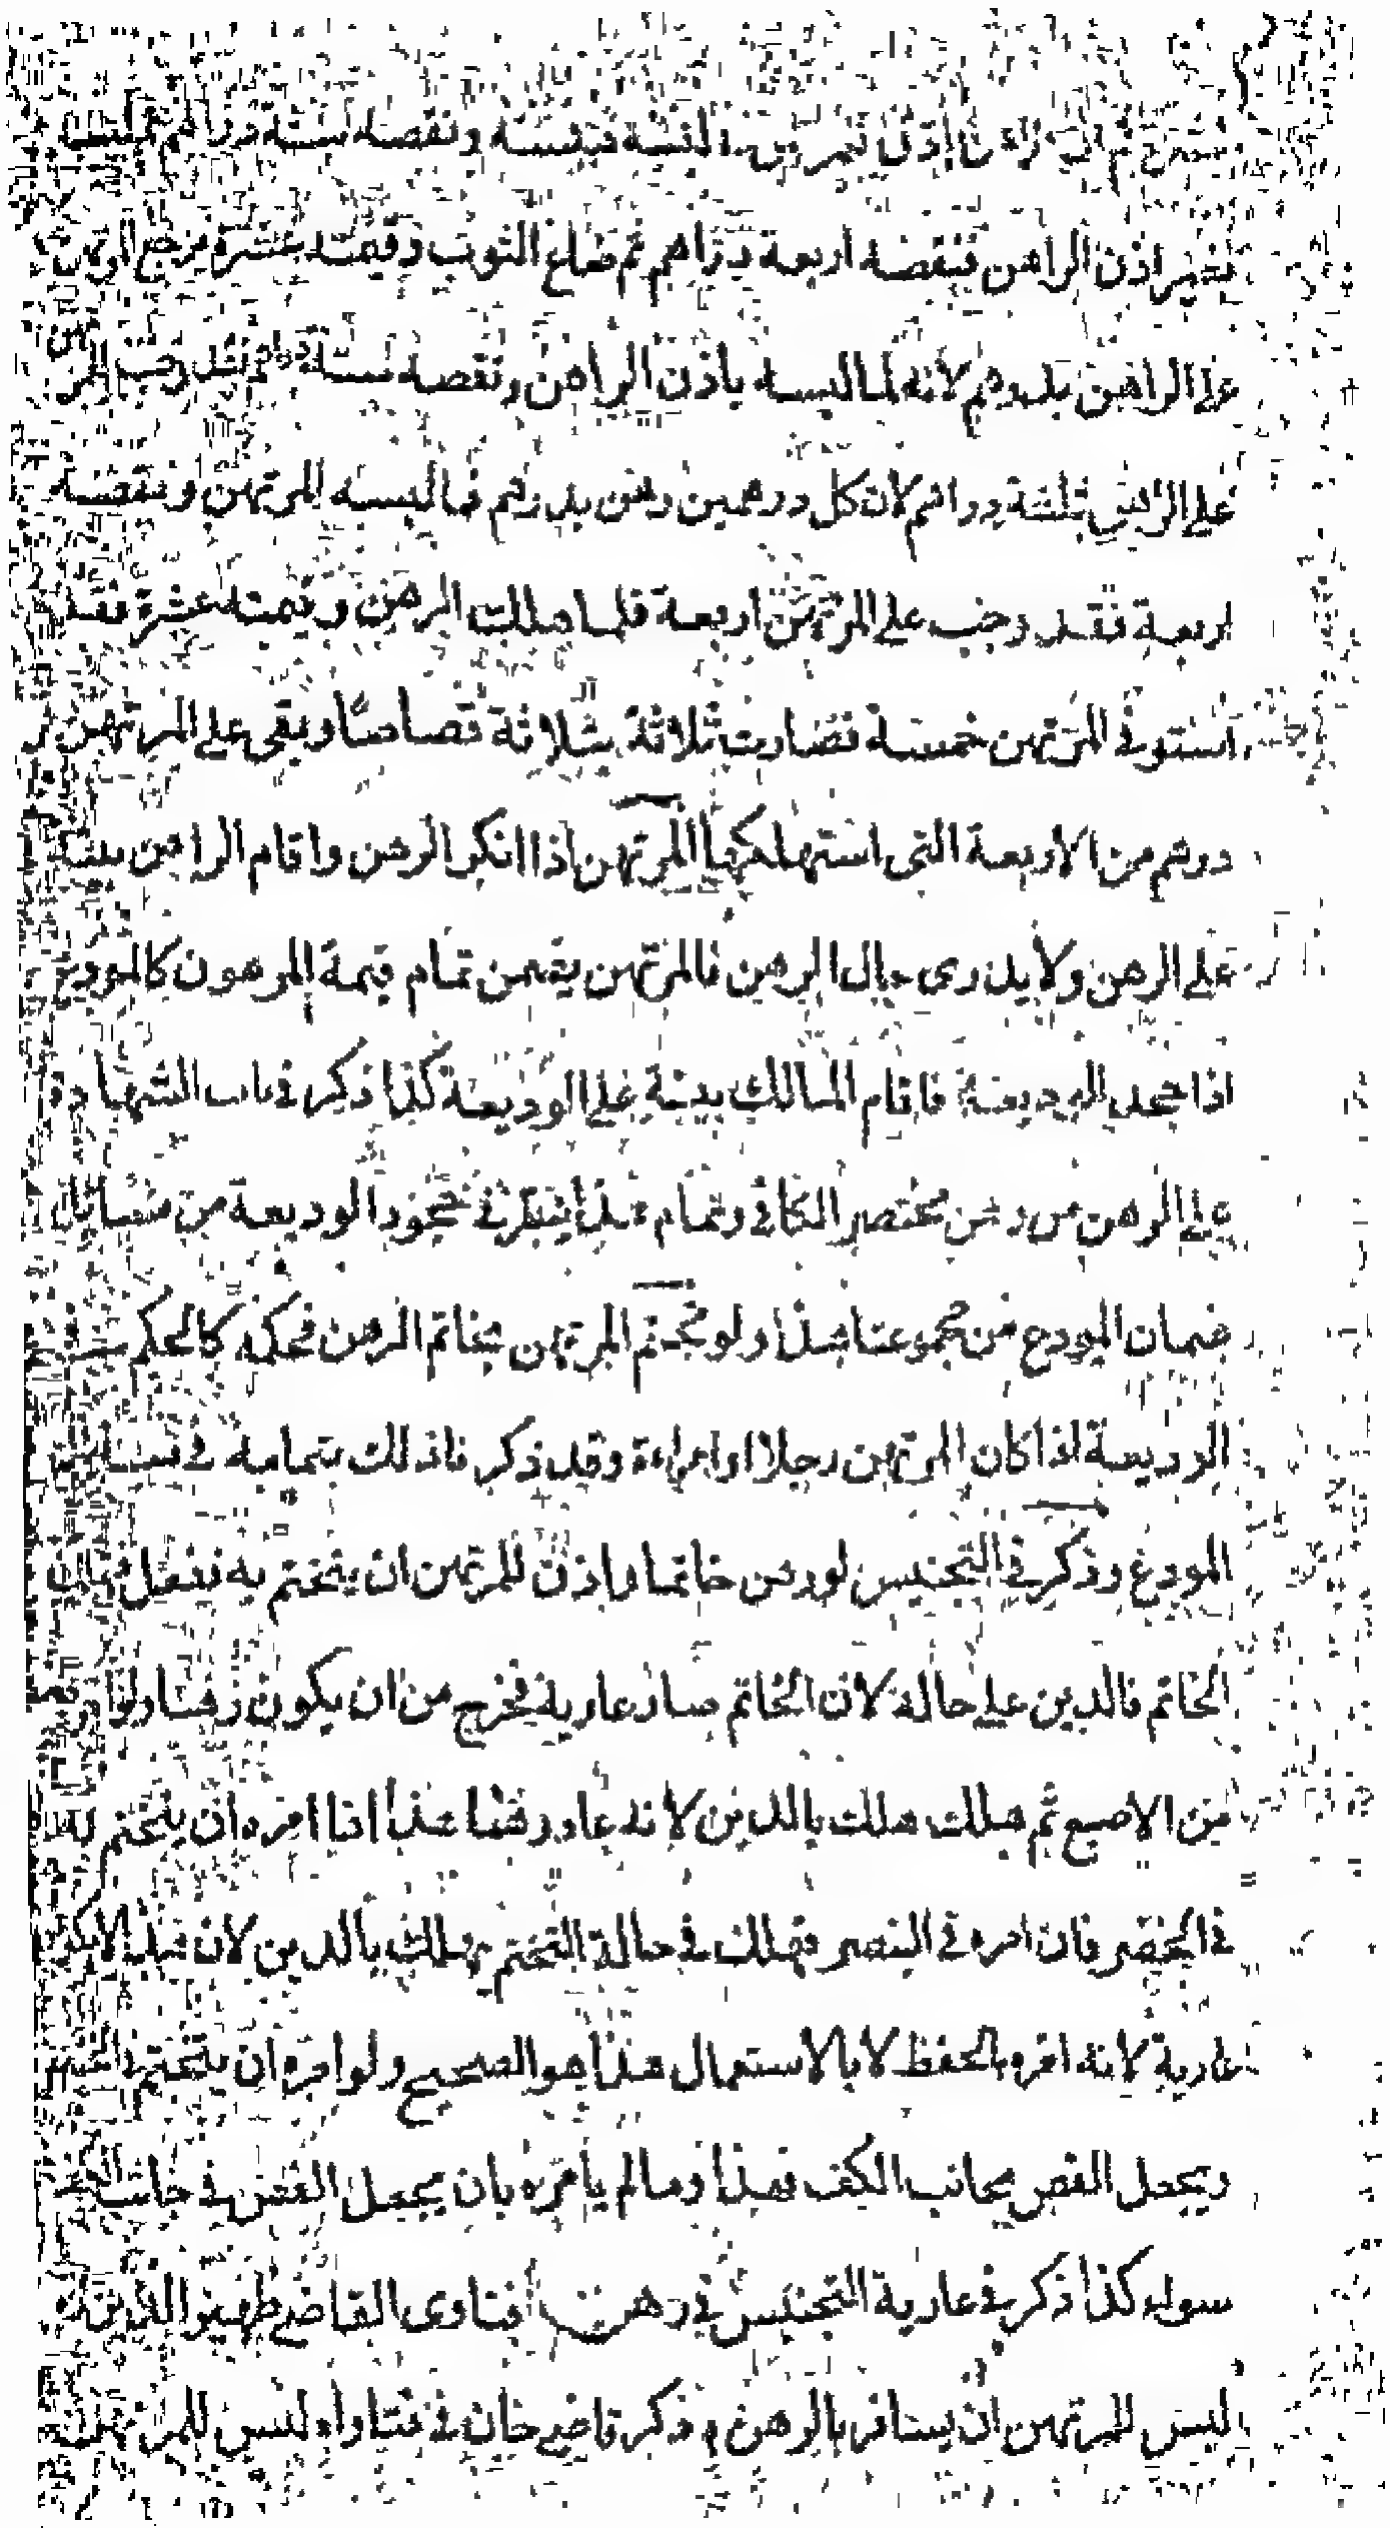 اذن للمرتهن البسه فلبسه ونقصه ستة دراهم ثم لبسه
بغير اذن الراهن فنقصه اربعة دراهم ثم ضاع الثوب وقيمته عشرة يرجع المرتهن
على الراهن بدرهم لانه لما لبسه باذن الراهن ونقصه ستة دراهم وجب للمرتهن
على الراهن ثلثة دراهم لان كل درهمين رهن بدرهم فما لبسه المرتهن ونقصه
اربعة فقد وجب على المرتهن اربعة فلما هلك الرهن وقيمته عشرة فقد
استوفى المرتهن خمسة فصارت ثلاثة بثلاثة قصاصا وبقى على المرتهن
درهم من الاربعة التى استهلكها المرتهن اذا انكر الرهن واقام الراهن بينة
على الرهن ولا يدرى حال الرهن فالمرتهن يضمن تمام قيمة المرهون كالمودع
اذا جحد الوديعة فاقام المالك بينة على الوديعة كذا ذكر فى باب الشهادة
على الرهن من رهن مختصر الكافى وتمام هذا ينظر فى جحود الوديعة من مسائل
ضمان المودع من مجموعنا هذا ولو تختم المرتهن بخاتم الرهن فحكمه كالحكم
الوديعة اذا كان المرتهن رجلا او امراءة وقد ذكرنا ذلك بتمامه فى
المودع وذكر فى التجنيس لو رهن خاتما واذن للمرتهن ان يتختم به ففعل
الخاتم فالدين على حاله لان الخاتم صار عارية فخرج من ان يكون رهنا ولو
من الاصبع ثم هلك هلك بالدين لانه عاد رهنا هذا اذا امره ان يتختم به
فى الخنصر فان امره فى البنصر فهلك فى حالة التختم يهلك بالدين لان هذا لا يكون
عارية لانه امره بالحفظ لا بالاستعمال هذا هو الصحيح ولو امره ان يتختم
ويجعل الفص بجانب الكف فهذا وما لم يأمره بان يجعل الفص فى جانب
سواء كذا ذكر فى عارية التجنيس فى رهن فتاوى القاضى ظهير الدين
ليس للمرتهن ان يسافر بالرهن وذكر قاضى خان فى فتاواه ليس للمرتهن